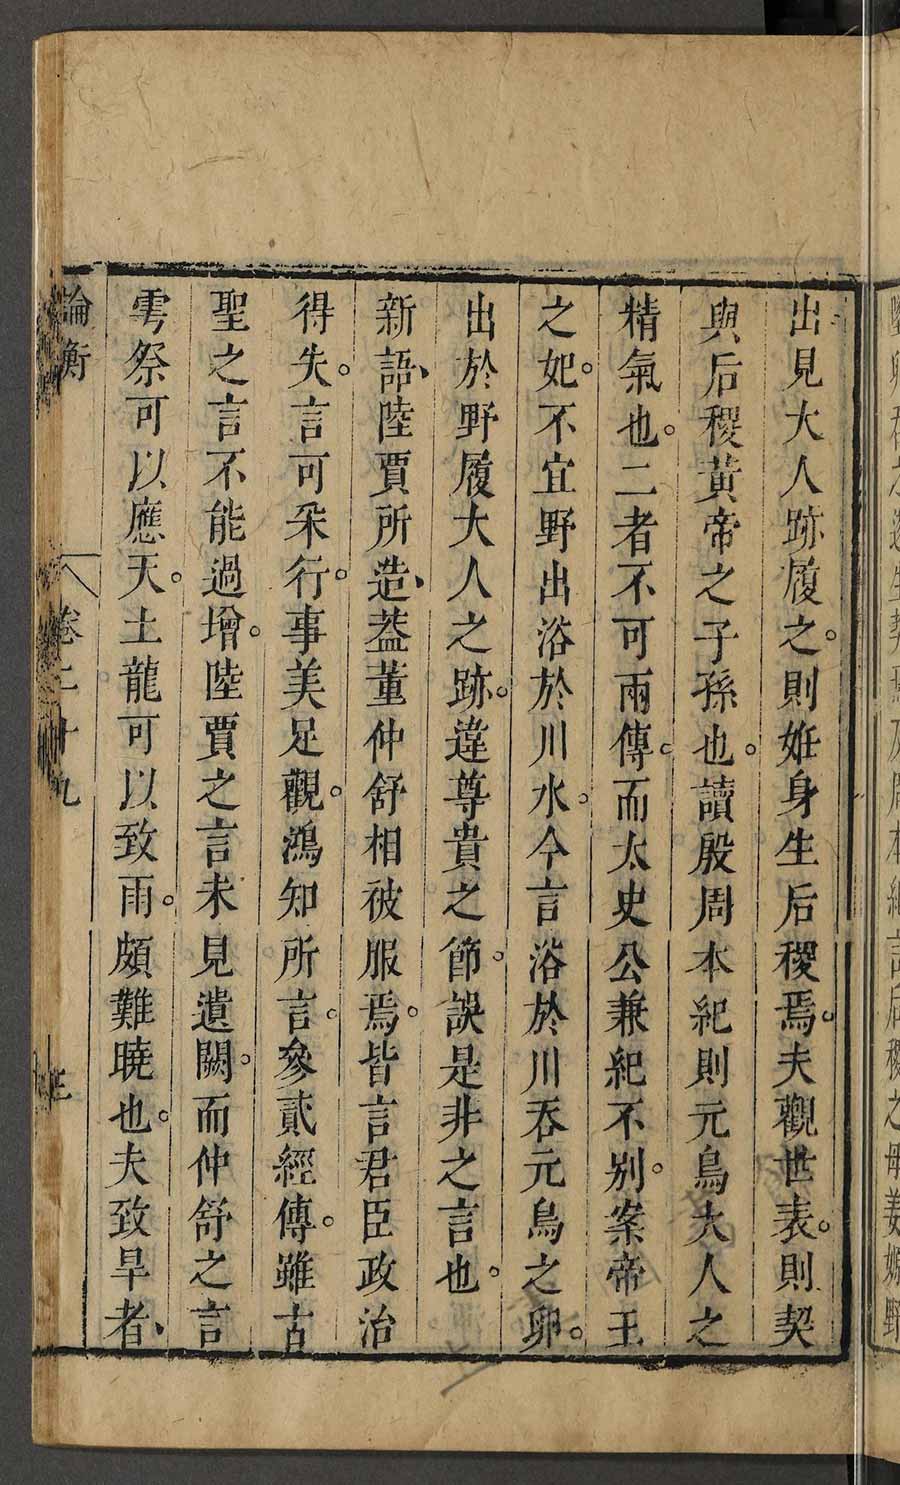 出見大人跡履之。則姙身生后稷焉。夫觀世表。則契
與后稷黃帝之子孫也。讀殷周本紀則元鳥大人之
精氣也。二者不可兩傳。而太史公兼紀不别。案帝王
之妃。不宜野出浴於川水。今言浴於川吞元鳥之卵。
出於野履大人之跡。違尊貴之節。誤是非之言也。
新語、陸賈所造、葢董仲舒相被服焉。皆言君臣政治
得失。言可采行。事美足觀。鴻知所言。參貳經傳。雖古
聖之言不能過增。陸賈之言未見遺闕。而仲舒之言
雩祭可以應天。土龍可以致雨。頗難曉也。夫致旱者、
論衡 卷二十九